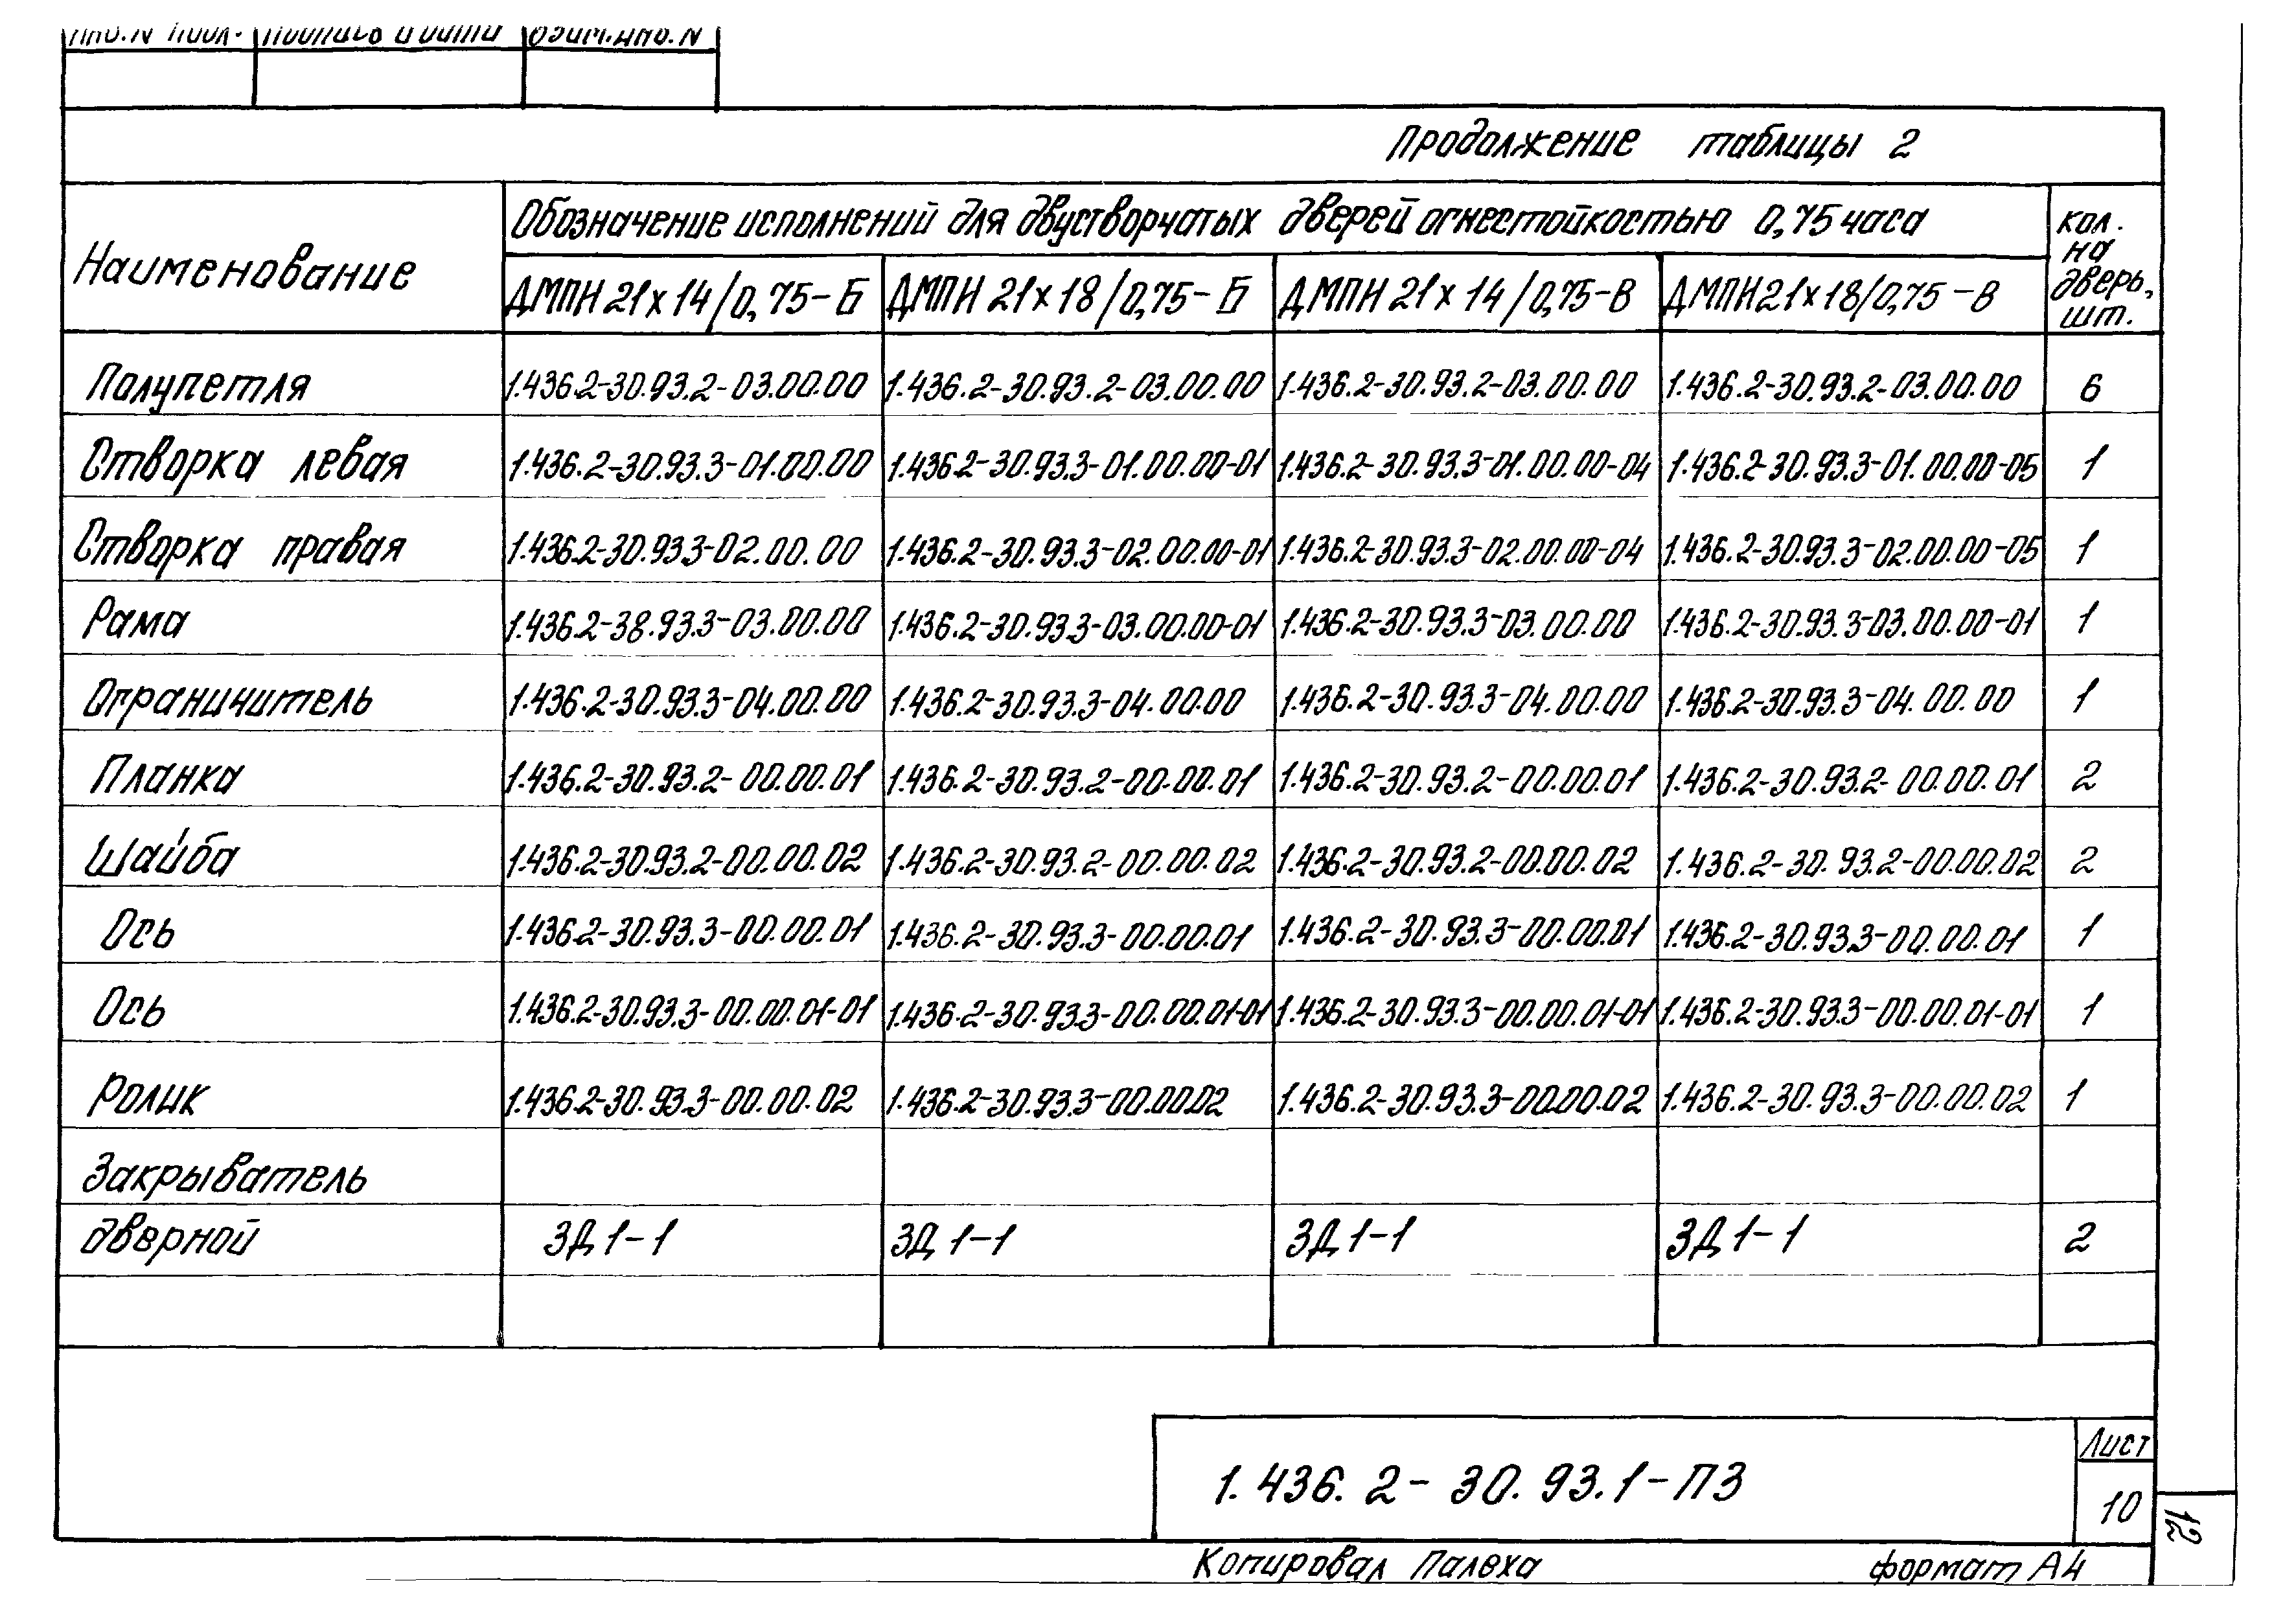 Инв.N подл. Подпись и дата Взам.инв.N
Продолжение таблицы 2
Наименование
Обозначение исполнений для двустворчатых дверей огнестойкостью 0,75 часа
кол. на дверь, шт.
ДМПН 21х14/0,75-Б ДМПН 21х18/0,75-Б ДМПН 21х14/0,75-В ДМПН 21х18/0,75-В
Полупетля 1.436.2-30.93.2-03.00.00 1.436.2-30.93.2-03.00.00 1.436.2-30.93.2-03.00.00 1.436.2-30.93.2-03.00.00 6
Створка левая 1.436.2-30.93.3-01.00.00 1.436.2-30.93.3-01.00.00-01 1.436.2-30.93.3-01.00.00-04 1.436.2-30.93.3-01.00.00-05 1
Створка правая 1.436.2-30.93.3-02.00.00 1.436.2-30.93.3-02.00.00-01 1.436.2-30.93.3-02.00.00-04 1.436.2-30.93.3-02.00.00-05 1
Рама 1.436.2-38.93.3-03.00.00 1.436.2-30.93.3-03.00.00-01 1.436.2-30.93.3-03.00.00 1.436.2-30.93.3-03.00.00-01 1
Ограничитель 1.436.2-30.93.3-04.00.00 1.436.2-30.93.3-04.00.00 1.436.2-30.93.3-04.00.00 1.436.2-30.93.3-04.00.00 1
Планка 1.436.2-30.93.2-00.00.01 1.436.2-30.93.2-00.00.01 1.436.2-30.93.2-00.00.01 1.436.2-30.93.2-00.00.01 2
Шайба 1.436.2-30.93.2-00.00.02 1.436.2-30.93.2-00.00.02 1.436.2-30.93.2-00.00.02 1.436.2-30.93.2-00.00.02 2
Ось 1.436.2-30.93.3-00.00.01 1.436.2-30.93.3-00.00.01 1.436.2-30.93.3-00.00.01 1.436.2-30.93.3-00.00.01 1
Ось 1.436.2-30.93.3-00.00.01-01 1.436.2-30.93.3-00.00.01-01 1.436.2-30.93.3-00.00.01-01 1.436.2-30.93.3-00.00.01-01 1
Ролик 1.436.2-30.93.3-00.00.02 1.436.2-30.93.3-00.00.02 1.436.2-30.93.3-00.00.02 1.436.2-30.93.3-00.00.02 1
Закрыватель
дверной ЗД 1-1 ЗД 1-1 ЗД 1-1 ЗД 1-1 2
1.436.2-30.93.1-ПЗ
Лист
10
12
Копировал Палеха формат А4